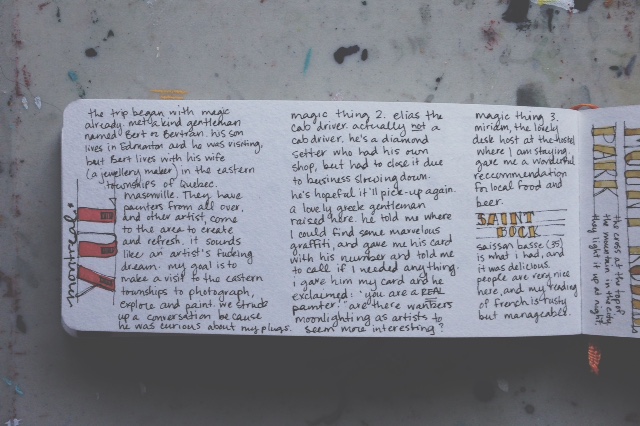 the trip began with magic
already. met a kind gentleman
named Bert or Bertran. his son
lives in Edmonton and he was visiting,
but Bert lives with his wife
(a jewellery maker) in the eastern
townships of Quebec.
mansonville. They have
painters from all over,
and other artist, come
to the area to create
and refresh. it sounds
like an artist's fucking
dream. my goal is to
make a visit to the eastern
townships to photograph,
explore and paint. we struck
up a conversation because
he was curious about my plugs.
montreal:
magic thing 2. elias the
cab driver. actually not a
cab driver. he's a diamond
setter who had his own
shop, but had to close it due
to business slowing down.
he's hopeful it'll pick-up again.
a lovely greek gentleman
raised here. he told me where
I could find some marvelous
graffiti, and gave me his card
with his number and told me
to call if I needed anything.
i gave him my card and he
exclaimed: "you are a REAL
painter" are there
moonlighting as artists to
seem more interesting?
magic thing 3.
miriam, the lovely
desk host at the hostel
where I am staying.
gave me a wonderful
reccommendation
for local food and
beer.
SAINT
BOCK
saison basse (35)
is what i had, and
it was delicious
people are very nice
here, and my reading
of french is rusty
but manageable.
PARK
the cross at the top of
the mountain in the city.
they light it up at night.